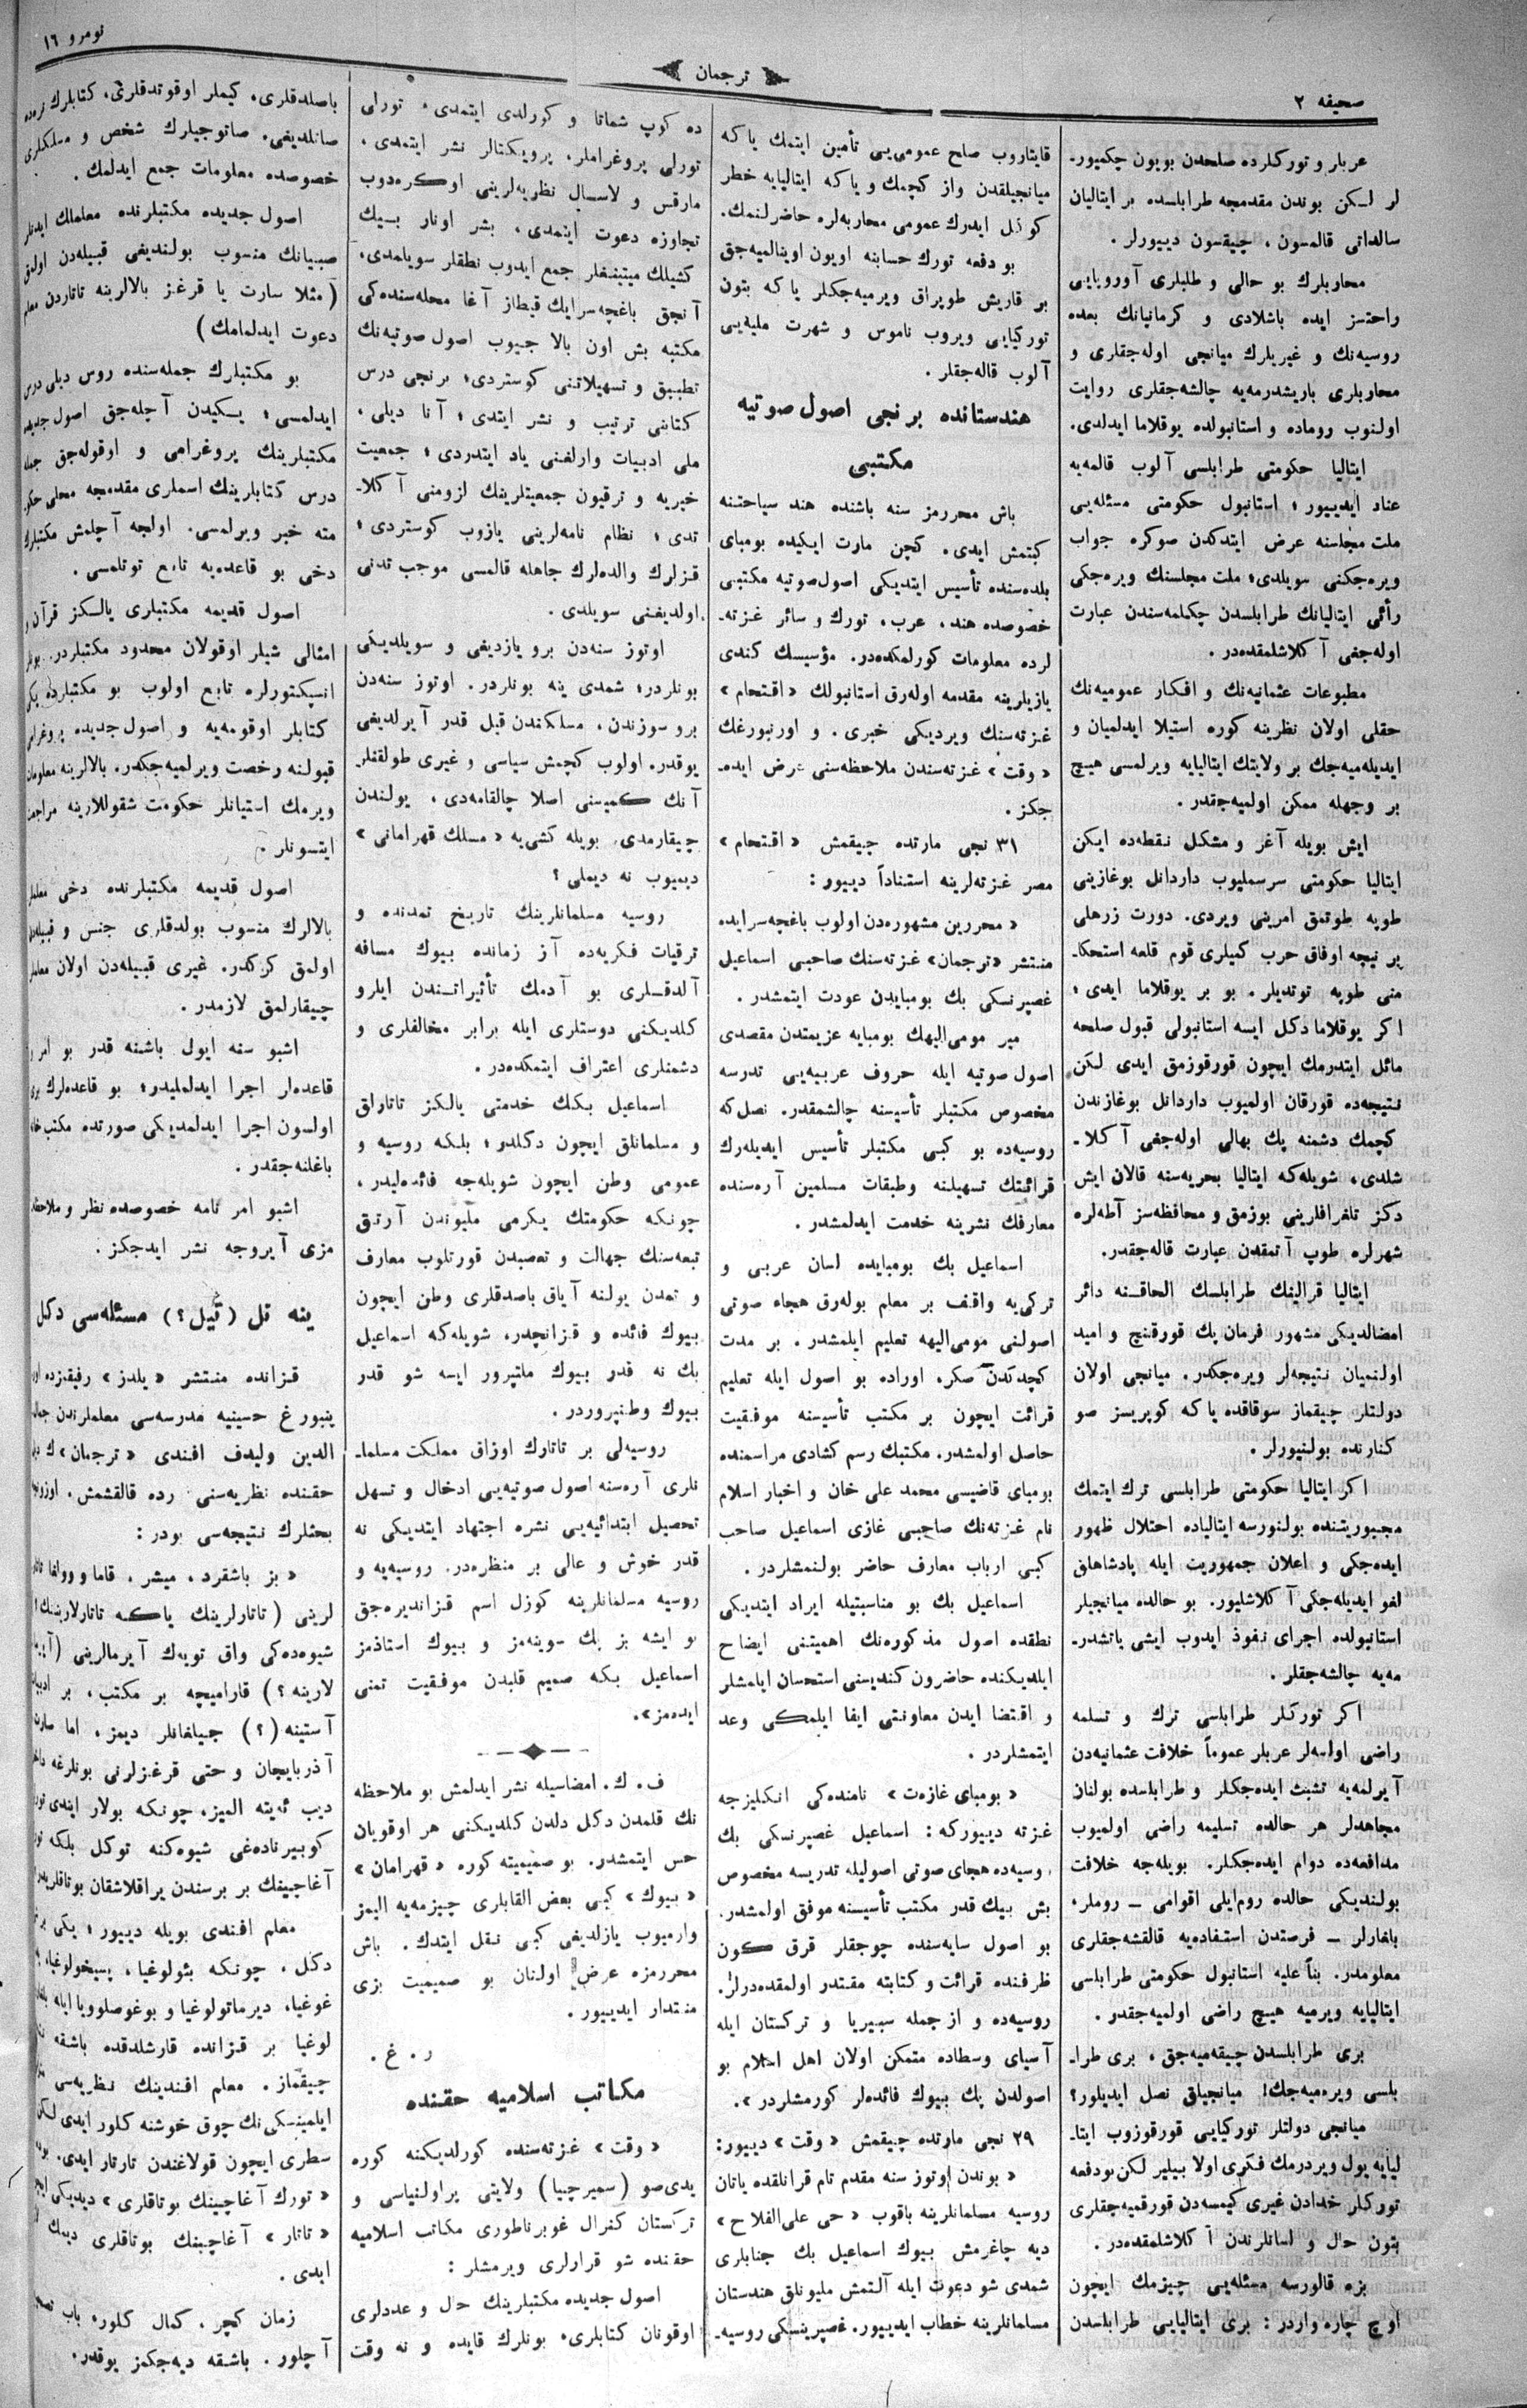 صحیفه ٢
ترجمان
نومرو ١٦
عربلر و تورکلرده صلحدن بویون چکمیور-
لر لـکن بوندن مقدمجه طرابلسده بر ایتالیان
سالداتی قالمسون ، چیقسون دییورلر .
محاربلرك بو حالی و طلبلری آوروپایی
راحتسز ایده باشلادی و کرمانیانك بعده
روسیه‌نك و غیریلرك میانجی اوله‌جقلری و
محاربلری باریشدرمه‌یه چالشه‌جقلری روایت
اولنوب روماده و استانبولده یوقلاما ایدلدی.
ایتالیا حکومتی طرابلسی آلوب قالمه‌یه
عناد ایدییور ؛ استانبول حکومتی مسئله‌یی
ملت مجلسنه عرض ایتدکدن صوکره جواب
ویره‌جکنی سویلدی؛ ملت مجلسنك ویره‌جکی
رأئی ایتالیانك طرابلسدن چکلمه‌سندن عبارت
اوله‌جغی آکلاشلمقده‌در .
مطبوعات عثمانیه‌نك و افکار عمومیه‌نك
حقلی اولان نظرینه کوره استیلا ایدلمیان و
ایدیله‌میه‌جك بر ولایتك ایتالیایه ویرلمسی هیچ
بر وجهله ممکن اولمیه‌جقدر .
ایش بویله آغر و مشکل نقطه‌ده ایکن
ایتالیا حکومتی سرسملیوب داردانل بوغازینی
طوپه طوتمق امرینی ویردی. دورت زرهلی
بر نیچه اوفاق حرب کمیلری قوم قلعه استحکا-
منی طوپه توتدیلر . بو بر یوقلاما ایدی ؛
اکر یوقلاما دکل ایسه استانبولی قبول صلحه
مائل ایتدرمك ایچون قورقوزمق ایدی لکن
نتیجه‌ده قورقان اولمیوب داردانل بوغازندن
کچمك دشمنه پك بهالی اوله‌جغی آکلا-
شلدی، شویله‌که ایتالیا بحریه‌سنه قالان ایش
دکز تلغرافلرینی بوزمق و محافظه‌سز آطه‌لره
شهرلره طوپ آتمقدن عبارت قاله‌جقدر.
ایتالیا قرالینك طرابلسك الحاقـنه دائر
امضالدیکی مشهور فرمان پك قورقنچ و امید
اولنمیان نتیجه‌لر ویره‌جکدر. میانجی اولان
دولتلر چیقماز سوقاقده یا که کوپریسز صو
کنارنده بولنیورلر .
اکر ایتالیا حکومتی طرابلسی ترك ایتمك
مجبوریتنده بولنورسه ایتالیاده احتلال ظهور
ایده‌جکی و اعلان جمهوریت ایله پادشاهلق
لغو ایدیله‌جکی آکلاشلیور. بو حالده میانجیلر
استانبولده اجرای نفوذ ایدوب ایشی یاتشدر-
مه‌یه چالشه‌جقلر .
اکر تورکلر طرابلسی ترك و تسلمه
راضی اولسه‌لر عربلر عموماً خلافت عثمانیه‌دن
آیرلمه‌یه تشبث ایده‌جکلر و طرابلسده بولنان
مجاهدلر هر حالده تسلیمه راضی اولمیوب
مدافعه‌ده دوام ایده‌جکلر. بویله‌جه خلافت
بولندیکی حالده روم‌ایلی اقوامی ــ روملر،
بلغارلر ــ فرصتدن استفاده‌یه قالقشه‌جقلری
معلومدر. بناً علیه استانبول حکومتی طرابلسی
ایتالیایه ویرمیه هیچ راضی اولمیه‌جقدر .
بری طرابلسدن چیقه‌میه‌جق ، بری طرا-
بلسی ویره‌میه‌جك! میانجیلق نصل ایدیلور؟
میانجی دولتلر تورکیایی قورقوزوب ایتا-
لیایه یول ویردرمك فکری اولا بیلیر لکن بودفعه
تورکلر خدادن غیری کیمسه‌دن قورقمیه‌جقلری
بتون حال و لسانلرندن آکلاشلمقده‌در .
بزه قالورسه مسئله‌یی چیزمك ایچون
اوچ چاره واردر : بری ایتالیایی طرابلسدن
قایتاروب صلح عمومی‌یی تأمین ایتمك یا که
میانجیلقدن واز کچمك و یا که ایتالیایه خطر
کوکل ایدرك عمومی محاربه‌لره حاضرلنمك.
بو دفعه تورك حسابنه اویون اوینالمیه‌جق
بر قاریش طوپراق ویرمیه‌جکلر یا که بتون
تورکیایی ویروب ناموس و شهرت ملیه‌یی
آلوب قاله‌جقلر .
هندستانده برنجی اصول صوتیه
مکتبی
باش محررمز سنه باشنده هند سیاحتنه
کیتمش ایدی. کچن مارت ایکیده بومبای
بلده‌سنده تأسیس ایتدیکی اصول‌صوتیه مکتبی
خصوصده هند ، عرب ، تورك و سائر غزته-
لرده معلومات کورلمکده‌در. مؤسیسك کندی
یازیلرینه مقدمه اوله‌رق استانبولك « اقتحام »
غزته‌سنك ویردیکی خبری . و اورنبورغك
« وقت » غزته‌سندن ملاحظه‌سنی عرض ایده-
جکز .
٣١ نجی مارتده چیقمش « اقتحام »
مصر غزته‌لرینه استناداً دییور :
« محررین مشهوره‌دن اولوب باغچه‌سرایده
منتشر «ترجمان» غزته‌سنك صاحبی اسماعیل
غصپرنسکی بك بومبایدن عودت ایتمشدر .
میر مومی‌الیهك بومبایه عزیمتدن مقصدی
اصول صوتیه ایله حروف عربیه‌یی تدرسه
مخصوص مکتبلر تأسیسنه چالشمقدر. نصل که
روسیه‌ده بو کبی مکتبلر تأسیس ایدیله‌رك
قرائتك تسهیلنه وطبقات مسلمین آره‌سنده
معارفك نشرینه خدمت ایدلمشدر .
اسماعیل بك بومبایده لسان عربی و
ترکی‌یه واقف بر معلم بوله‌رق هجاء صوتی
اصولنی مومی‌الیهه تعلیم ایلمشدر . بر مدت
کچدکدن صکره اوراده بو اصول ایله تعلیم
قرائت ایچون بر مکتب تأسیسنه موفقیت
حاصل اولمشدر. مکتبك رسم کشادی مراسمنده
بومبای قاضیسی محمد علی خان و اخبار اسلام
نام غزته‌نك صاحبی غازی اسماعیل صاحب
کبی ارباب معارف حاضر بولنمشلردر .
اسماعیل بك بو مناسبتیله ایراد ایتدیکی
نطقده اصول مذکوره‌نك اهمیتنی ایضاح
ایلدیکنده حاضرون کندیسنی استحسان ایلمشلر
و اقتضا ایدن معاونتی ایفا ایلمکی وعد
ایتمشلردر .
« بومبای غازەت » نامنده‌کی انکلیزجه
غزته دییورکه : اسماعیل غصپرنسکی بك
روسیه‌ده هجای صوتی اصولیله تدریسه مخصوص
بش بیك قدر مکتب تأسیسنه موفق اولمشدر.
بو اصول سایه‌سنده چوجقلر قرق کون
ظرفنده قرائت و کتابته مقتدر اولمقده‌درلر.
روسیه‌ده و از جمله سیبریا و ترکستان ایله
آسیای وسطاده متمکن اولان اهل اسلام بو
اصولدن پك بیوك فائده‌لر کورمشلردر ».
٢٩ نجی مارتده چیقمش « وقت » دییور:
« بوندن اوتوز سنه مقدم تام قرانلقده یاتان
روسیه مسلمانلرینه باقوب « حی علی‌الفلاح »
دیه چاغرمش بیوك اسماعیل بك جنابلری
شمدی شو دعوت ایله آلتمش ملیونلق هندستان
مسلمانلرینه خطاب ایدییور. غصپرینسکی روسیه-
ده کوپ شماتا و کورلدی ایتمدی ، تورلی
تورلی پروغراملر، پرویکتالر نشر ایتمدی ،
مارقس و لاسال نظریه‌لرینی اوکره‌دوب
تجاوزه دعوت ایتمدی ، بشر اونار بـیك
کشیلك میتینغلر جمع ایدوب نطقلر سویلمدی،
آنجق باغچه‌سرایك قبطاز آغا محله‌سنده‌کی
مکتبه بش اون بالا جیوب اصول صوتیه‌نك
تطبیق و تسهیلاتنی کوستردی؛ برنجی درس
کتابنی ترتیب و نشر ایتدی ؛ آنا دیلی ،
ملی ادبیات وارلغنی یاد ایتدردی ؛ جمعیت
خیریه و ترقیون جمعیتلرینك لزومنی آکلا-
تدی ؛ نظام نامه‌لرینی یازوب کوستردی ؛
قزلرك والده‌لرك جاهله قالمسی موجب تدنی
اولدیغنی سویلدی .
اوتوز سنه‌دن برو یازدیغی و سویلدیکی
بونلردر؛ شمدی ینه بونلردر. اوتوز سنه‌دن
برو سوزندن ، مسلکندن قیل قدر آیرلدیغی
یوقدر. اولوب کچمش سیاسی و غیری طولقنلر
آنك کمیسنی اصلا چالقامه‌دی ، یولندن
چیقارمدی، بویله کشی‌یه « مسلك قهرامانی »
دیمیوب نه دیملی ؟
روسیه مسلمانلرینك تاریخ تمدنده و
ترقیات فکریه‌ده آز زمانده بیوك مسافه
آلدقـلری بو آدمك تأثیراتـندن ایلرو
کلدیکنی دوستلری ایله برابر مخالفلری و
دشمنلری اعتراف ایتمکده‌در .
اسماعیل بكك خدمتی یالکز تاتارلق
و مسلمانلق ایچون دکلدر ؛ بلـکه روسیه و
عمومی وطن ایچون شویله‌جه فائده‌لیدر ،
چونکه حکومتك یکرمی ملیوندن آرتق
تبعه‌سنك جهالت و تعصبدن قورتلوب معارف
و تمدن یولنه آیاق باصدقلری وطن ایچون
بیوك فائده و قزانچدر، شویله‌که اسماعیل
بك نه قدر بیوك ملتپرور ایسه شو قدر
بیوك وطنپروردر .
روسیه‌لی بر تاتارك اوزاق مملکت مسلما-
نلری آره‌سنه اصول صوتیه‌یی ادخال و تسهل
تحصیل ابتدائیه‌یی نشره اجتهاد ایتدیکی نه
قدر خوش و عالی بر منظره‌در. روسیه‌یه و
روسیه مسلمانلرینه کوزل اسم قزاندیره‌جق
بو ایشه بز پك سوینه‌مز و بیوك استاذمز
اسماعیل بكه صمیم قلبدن موفقیت تمنی
ایده‌مز».
ف . ك . امضاسیله نشر ایدلمش بو ملاحظه
نك قلمدن دکل دلدن کلدیکنی هر اوقویان
حس ایتمشدر. بو صمیمیته کوره « قهرامان »
« بیوك » کبی بعض القابلری چیزمه‌یه الیمز
وارمیوب یازلدیغی کبی نقل ایتدك . باش
محررمزه عرض اولنان بو صمیمیت بزی
منتدار ایدییور .
ر . غ .
مکاتب اسلامیه حقنده
« وقت » غزته‌سنده کورلدیکنه کوره
یدی‌صو (سمیرچیا) ولایتی پراولنیاسی و
ترکستان کنرال غوبرناطوری مکاتب اسلامیه
حقنده شو قرارلری ویرمشلر :
اصول جدیده مکتبلرینك حال و عددلری
اوقونان کتابلری، بونلرك قایده و نه وقت
باصلدقلری، کیملر اوقوتدقلری، کتابلرك نره‌ده
صاتلدیغی، صاتوجیلرك شخص و مسلکلری
خصوصده معلومات جمع ایدلمك .
اصول جدیده مکتبلرنده معلملك ایدنلر
صبیانك منسوب بولندیغی قبیله‌دن اولمق
(مثلا سارت یا قرغز بالالرینه تاتاردن معلم
دعوت ایدلمامك)
بو مکتبلرك جمله‌سنده روس دیلی درس
ایدلمسی ؛ یـکیدن آچله‌جق اصول جدیده
مکتبلرینك پروغرامی و اوقوله‌جق جمله
درس کتابلرینك اسملری مقدمجه محلی حکو-
مته خبر ویرلمسی. اولجه آچلمش مکتبلرك
دخی بو قاعده‌یه تابع توتلمسی .
اصول قدیمه مکتبلری یالـکز قرآن و
امثالی شیلر اوقولان محدود مکتبلردر. بونلر
انسپکتورلره تابع اولوب بو مکتبلرده یکی
کتابلر اوقومه‌یه و اصول جدیده پروغرامی
قبولنه رخصت ویرلمیه‌جکدر. بالالرینه معلومات
ویرمك استیانلر حکومت شقوللارینه مراجعت
ایتسونلر .
اصول قدیمه مکتبلرنده دخی معلملر
بالالرك منسوب بولدقلری جنس و قبیله‌دن
اولمق کرکدر. غیری قبیله‌دن اولان معلملر
چیقارلمق لازمدر .
اشبو سنه ایول باشنه قدر بو امر و
قاعده‌لر اجرا ایدلملیدر؛ بو قاعده‌لرك بری
اولسون اجرا ایدلمدیکی صورتده مکتب خانه
باغلنه‌جقدر .
اشبو امر نامه خصوصده نظر و ملاحظه
مزی آیروجه نشر ایدجکز .
ینه تل (تیل؟) مسئله‌سی دکل
قزانده منتشر « یلدز » رفیقمزده اور
ینبورغ حسینیه مدرسه‌سی معلملرندن جمال
الدین ولیدف افندی « ترجمان» ك دیل
حقنده نظریه‌سنی رده قالقشمش . اوزون
بحثلرك نتیجه‌سی بودر :
« بز باشقرد ، میشر ، قاما و وولغا تاتار
لرینی (تاتارلرینك یاکه تاتارلارینك؟)
شیوه‌ده‌کی واق تویه‌ك آیرمالرینی (آیرما
لارینه ؟) قارامیچه بر مکتب ، بر ادبیات
آستینه (؟) جیلغانلر دیمز ، اما سارت
آذربایجان و حتی قرغزلرنی بونلرغه داخل
دیب ئه‌یته المیز، چونکه بولار ایندی تورك
کوبیرناده‌غی شیوه‌کنه توکل بلکه تورك
آغاچینك بر برسندن یراقلاشقان بوتاقلریدر
معلم افندی بویله دییور ؛ یکی بر
دکل ، چونکه بئولوغیا ، پسیخولوغیا،
غوغیا، دیرماتولوغیا و بوغوصلوویا ایله
لوغیا بر قزانده قارشلدقده باشقه
چیقماز . معلم افندینك نظریه‌سی
ایلمینسکی‌نك چوق خوشنه کلور ایدی لکن
سطری ایچون قولاغندن تارتار ایدی.
« تورك آغاچینك بوتاقلری » دیدیکی ایچون
« تاتار » آغاچینك بوتاقلری دیمك
ایدی .
زمان کچر ، کمال کلور، باب
آچلور . باشقه دیه‌جکمز یوقدر.